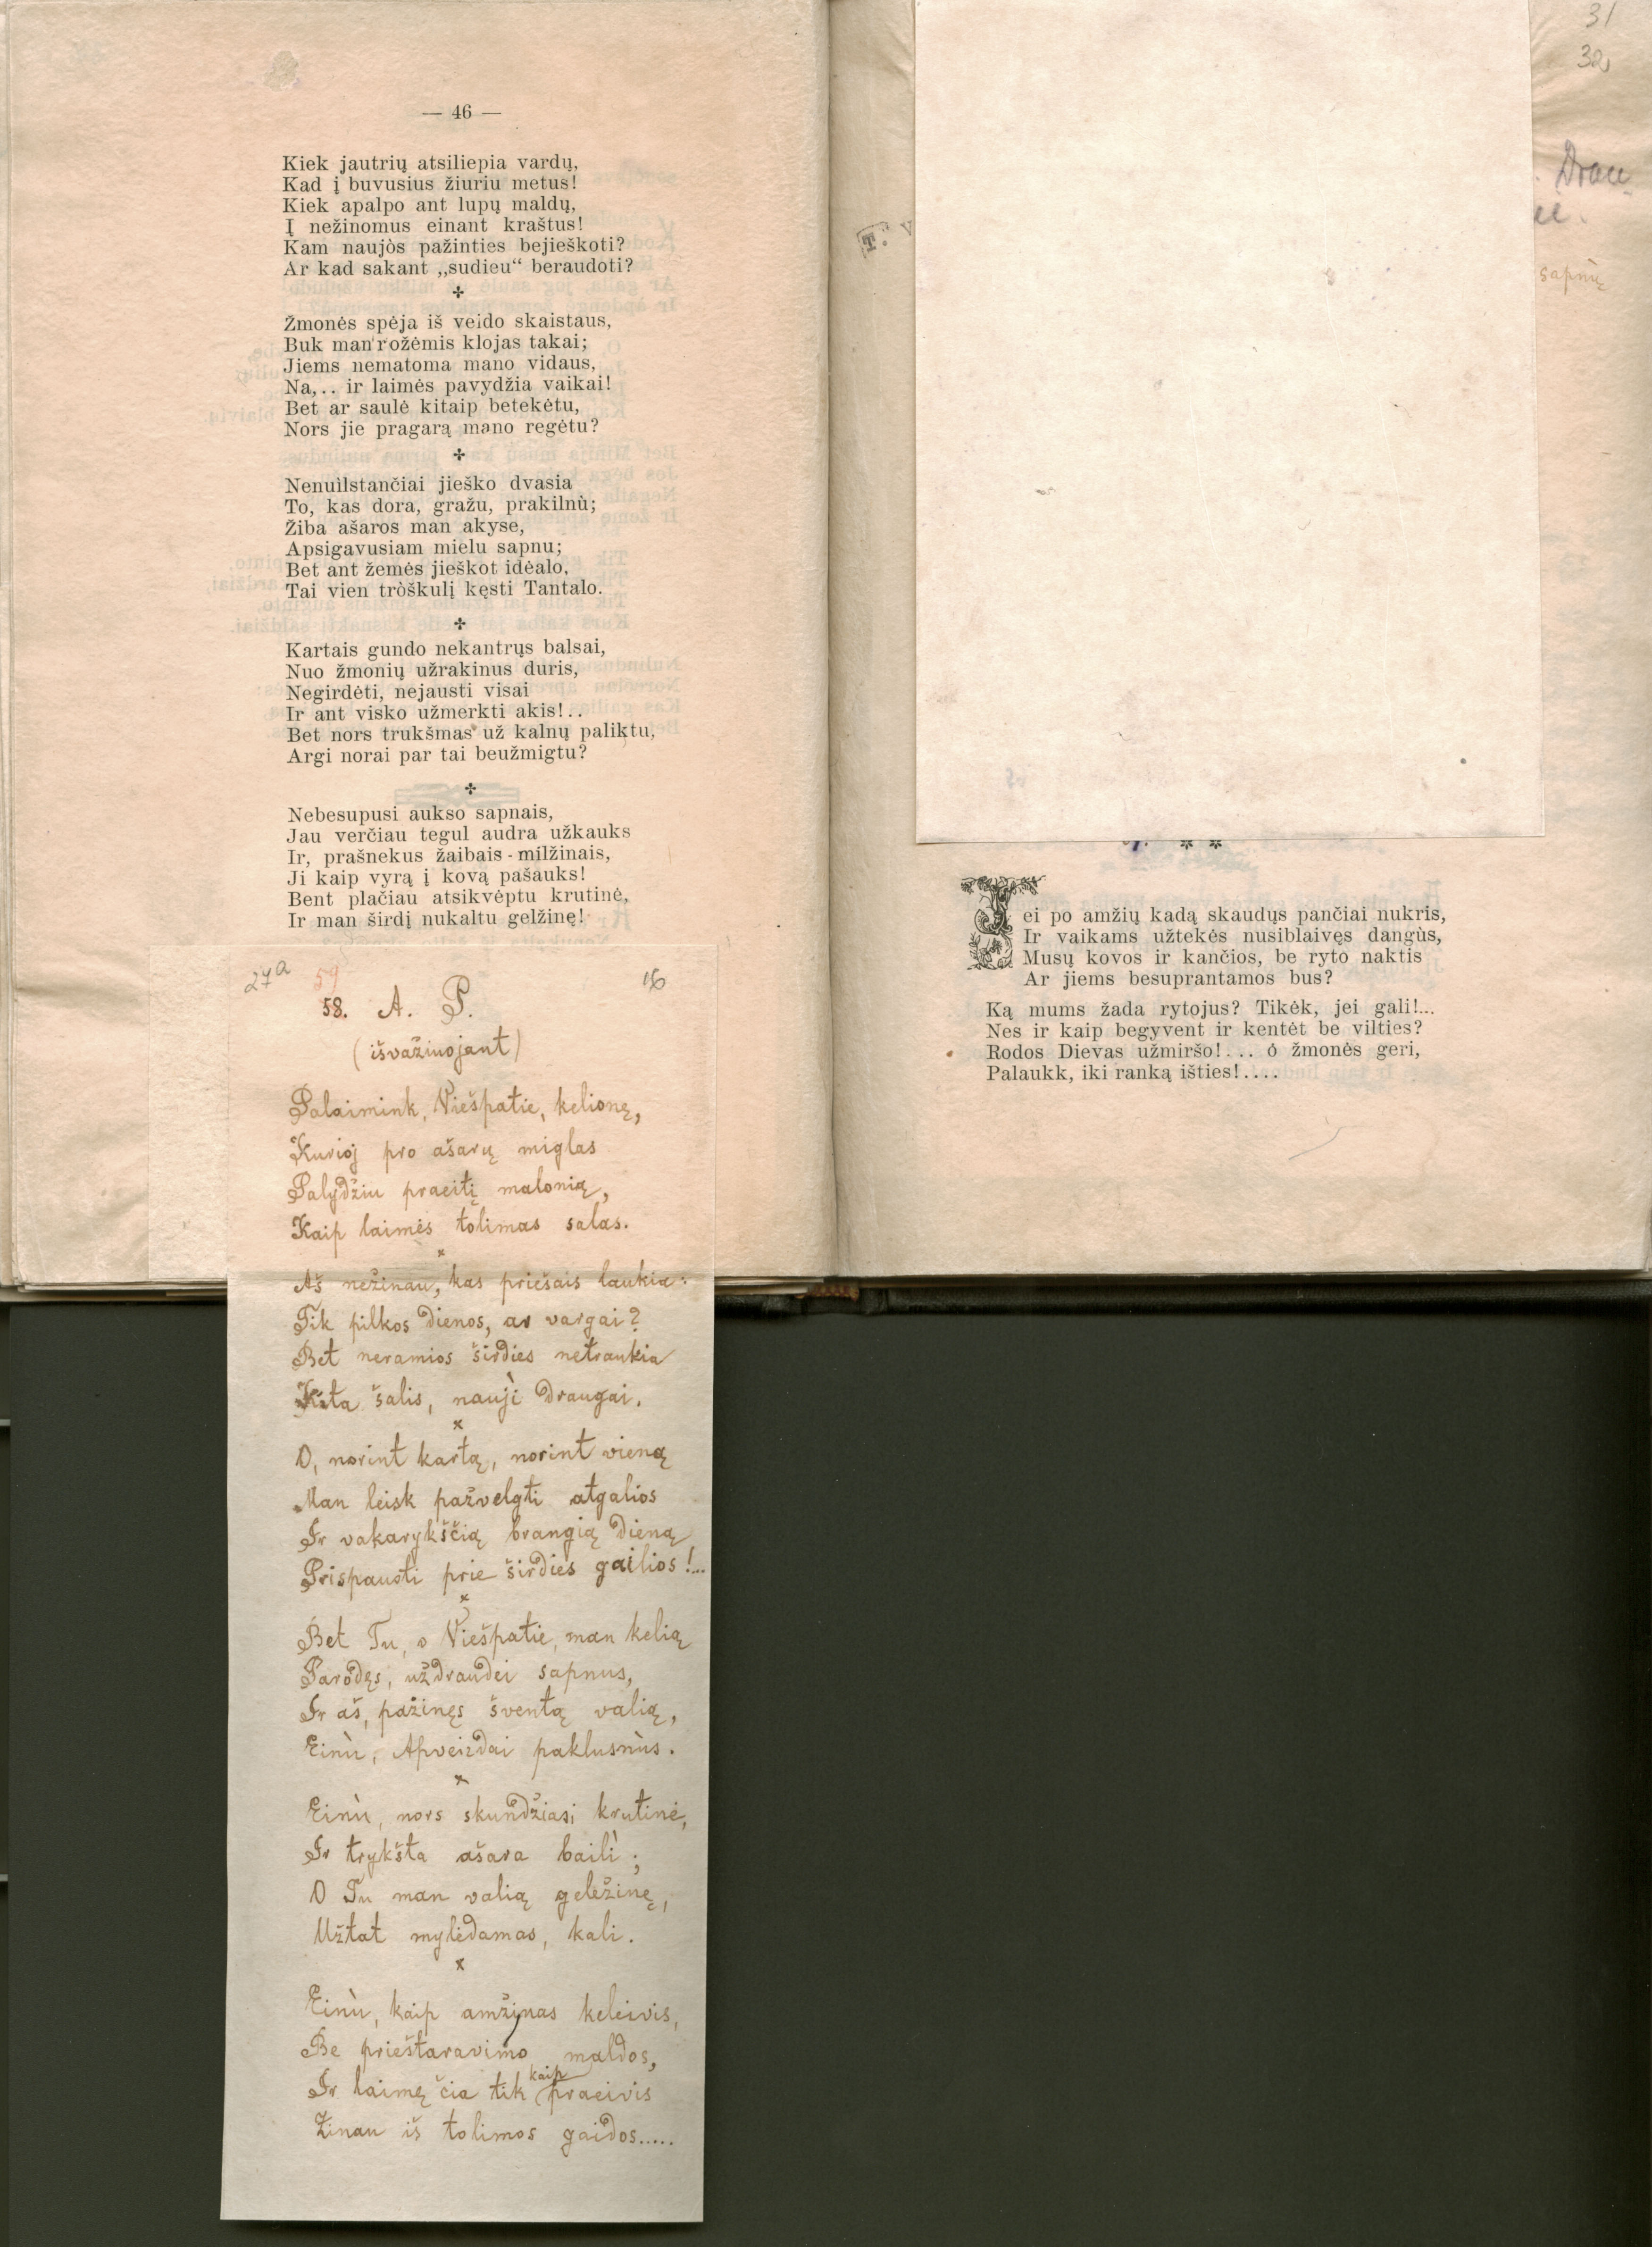 — 46 —
Kiek jautrių atsiliepia vardų,
Kad į buvusius žiuriu metus!
Kiek apalpo ant lupų maldų,
Į nežinomus einant kraštus!
Kam naujòs pažinties bejieškoti?
Ar kad sakant „sudieu“ beraudoti?
✢
Žmonės spėja iš veido skaistaus,
Buk man rožėmis klojas takai;
Jiems nematoma mano vidaus,
Na,.. ir laimės pavydžia vaikai!
Bet ar saulė kitaip betekėtu,
Nors jie pragarą mano regėtu?
✢
Nenuilstančiai jieško dvasia
To, kas dora, gražu, prakilnù;
Žiba ašaros man akyse,
Apsigavusiam mielu sapnu;
Bet ant žemės jieškot idėalo,
Tai vien tròškulį kęsti Tantalo.
✢
Kartais gundo nekantrųs balsai,
Nuo žmonių užrakinus duris,
Negirdėti, nejausti visai
Ir ant visko užmerkti akis!..
Bet nors trukšmas už kalnų paliktu,
Argi norai par tai beužmigtu?
✢
Nebesupusi aukso sapnais,
Jau verčiau tegul audra užkauks
Ir, prašnekus žaibais-milžinais,
Ji kaip vyrą į kovą pašauks!
Bent plačiau atsikvėptu krutinė,
Ir man širdį nukaltu gelžinę!
27a 59
58. A. P.
(išvažiuojant)
Palaimink, Viešpatie, kelionę,
Kurioj pro ašarų miglas
Palydžiu praeitį malonią,
Kaip laimės tolimas salas.
x
Aš nežinau, kas priešais laukia:
Tik pilkos dienos, ar vargai?
Bet neramios širdies netraukia
Kita šalis, naujì draugai.
x
O, norint kartą, norint vieną
Man leisk pažvelgti atgalios
Ir vakarykščią brangią dieną
Prispausti prie širdies gailios!...
x
Bet Tu, o Viešpatie, man kelią
Parodęs, uždraudei sapnus,
Ir aš, pažinęs šventą valią,
Einù, Apveizdai paklusnùs.
x
Einù, nors skundžiasi krutinė,
Ir trykšta ašara bailì;
O Tu man valią geležinę,
Užtat mylėdamas, kali.
x
Einù, kaip amžinas keleivis,
Be prieštaravimo maldos,
Ir laimę čia tik kaip praeivis
Žinau iš tolimos gaidos.....
31
32
sapnų
T. V
* *
Jei po amžių kadą skaudųs pančiai nukris,
Ir vaikams užtekės nusiblaivęs dangùs,
Musų kovos ir kančios, be ryto naktis
Ar jiems besuprantamos bus?
Ką mums žada rytojus? Tikėk, jei gali!...
Nes ir kaip begyvent ir kentėt be vilties?
Rodos Dievas užmiršo!... ó žmonės geri,
Palaukk, iki ranką išties!....